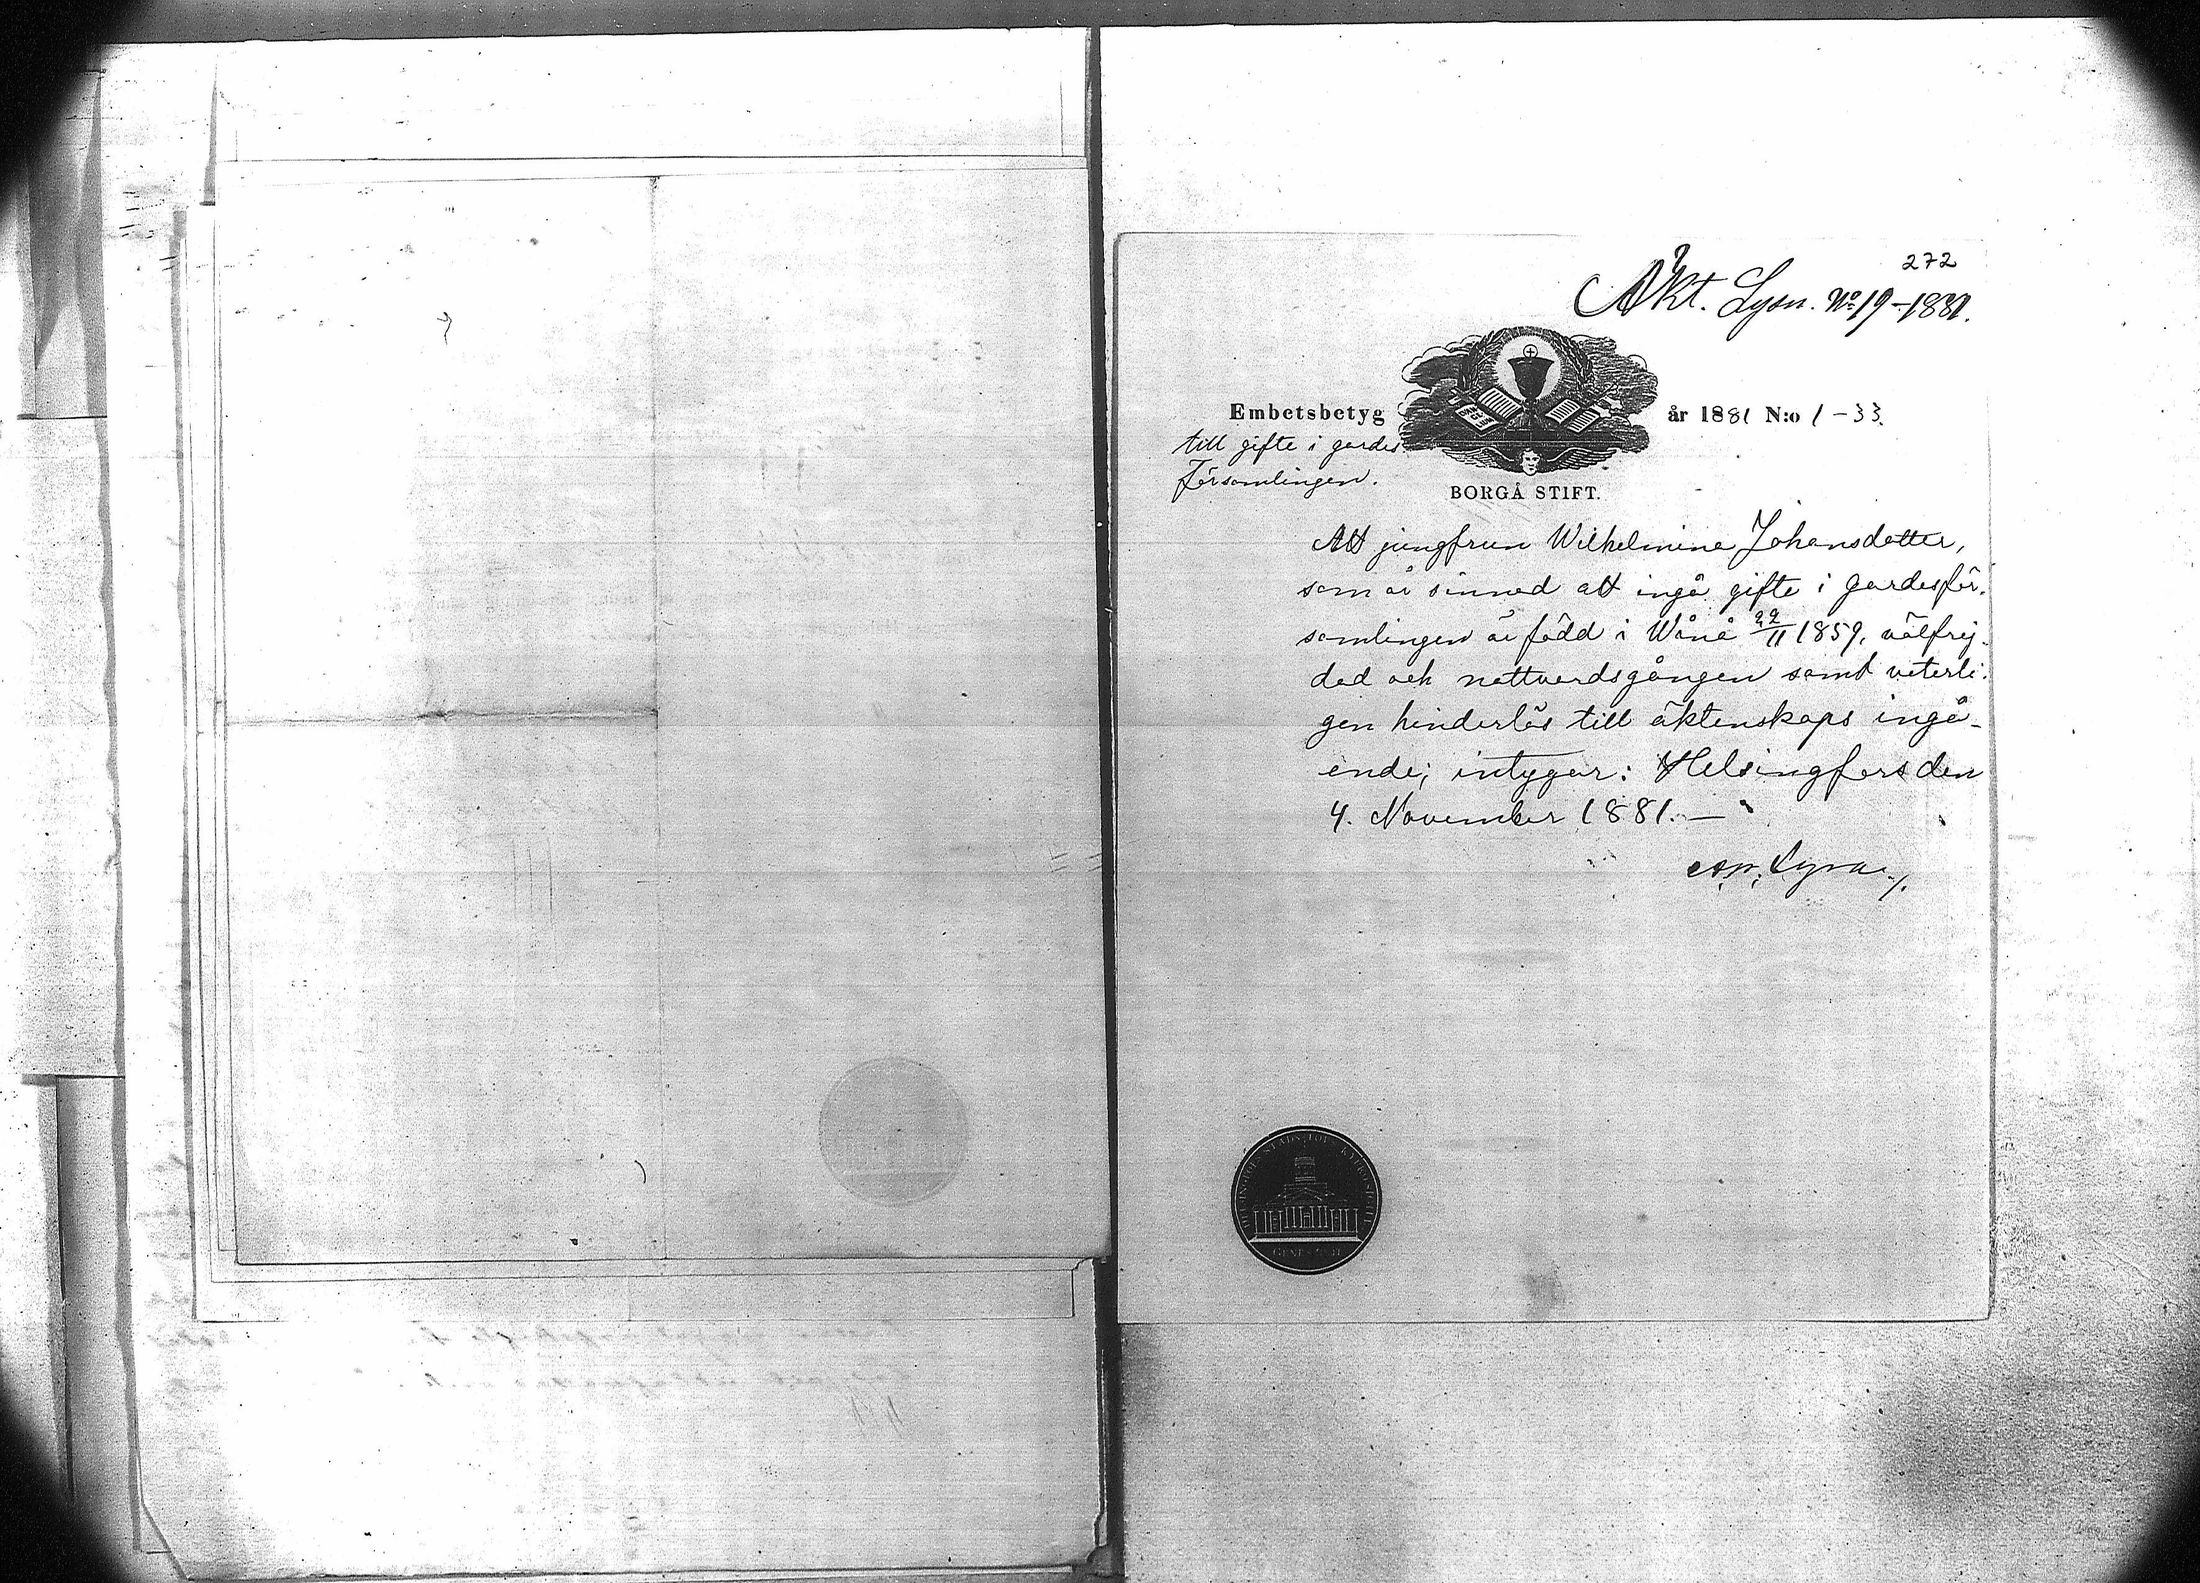 272
Äkt. Lysn. No 19-1881.
Embetsbetyg år 1881 N:o 1-33.
till gifte i gardes
församlingen.
BORGÅ STIFT.
Att jungfrun Wilhelmina Johansdotter,
som är sinnad att ingå gifte i gardesför-
samlingen är född i Wånå 22/11 1859, välfrej-
dad och nattvardsgången samt veterli-
gen hinderlös till äktenskaps ingå-
ende; intygar: Helsingfors den
4. November 1881.—